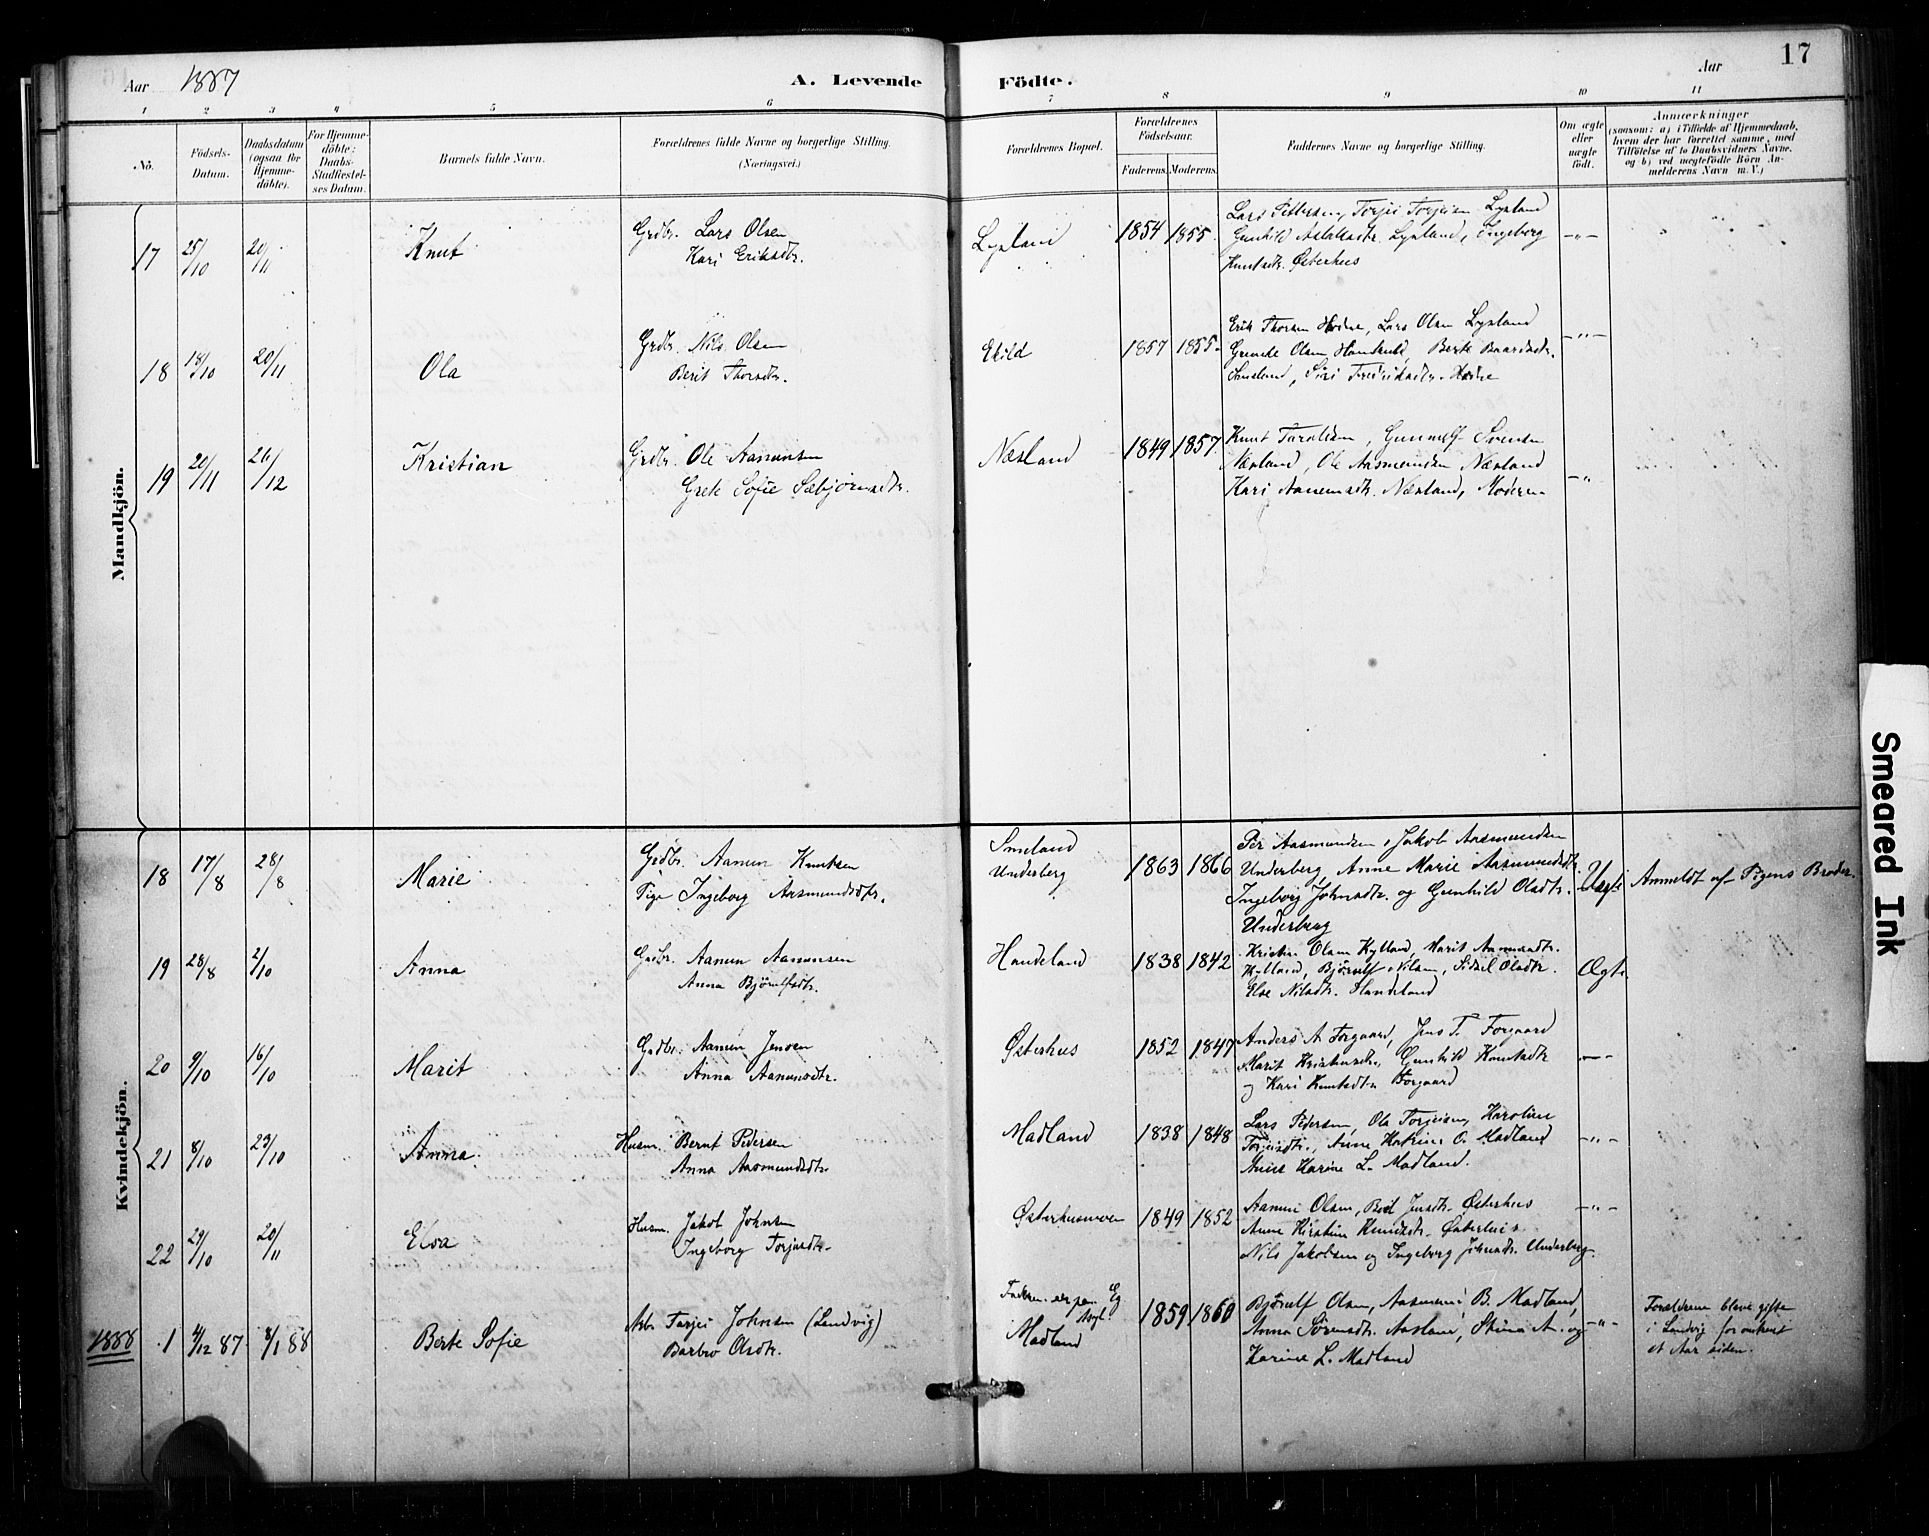 17
Aar 1887 A. Levende Födte. Aar
1 2 3 4 5 6 7 8 9 10 11
No.
Födsels-Datum.
Daabsdatum (ogsaa for Hjemmedöbte).
For Hjemmedöbte: Daabs-Stadfæstelses Datum.
Barnets fulde Navn.
Forældrenes fulde Navne og borgerlige Stilling. (Næringsvei.)
Forældrenes Bopæl.
Forældrenes Födselsaar.
Faderens. Moderens.
Faddernes Navne og borgerlige Stilling.
Om ægte eller uægte födt.
Anmærkninger (saasom: a) i Tilfælde af Hjemmedaab, hvem der har forrettet samme, med Tilföielse af to Daabsvidners Navne, og b) ved uægtefödte Börn Anmelderens Navn m. V.)
Mandkjön.
17 25/10 20/11 Knut Grdbr. Lars Olsen
Kari Eriksdtr.
Lysland 1854 1855
Lars Pettersen, Torjei Torjeisen Lysland
Gunhild Aslaksdtr. Lysland, Ingeborg
Knutsdtr. Østerhus
-"-
18 18/10 20/11 Ola Grdbr. Nils Olsen
Berit Thorsdtr.
Ekild 1857 1855
Erik Thorsen Hodne, Lars Olsen Lysland
Olsen Berte Baardsdtr.
Smeland, Siri Fredriksdtr. Hodne
-"-
19 20/11 26/12 Kristian Grdbr. Ole Aanunsen
Grete Sofie Sæbjørnsdtr.
Næsland 1849 1857
Knut Taraldsen, Gunnulf Svensen
Næsland, Ole Aasmundsen Næsland
Kari Aanensdtr. Næsland, Moderen
-"-
Kvindekjön.
18 17/8 28/8 Marie Grdbr. Aanun Knutsen
Pige Ingeborg Aasmundsdtr.
Smeland
Underberg
1863 1866
Per Aasmundsen, Jakob Aasmundsen
Underberg Anne Marie Aasmundsdtr.
Ingeborg Johnsdtr. og Gunhild Olsdtr.
Underberg
Uægte Anmeldt af Pigens Broder.
19 28/8 2/10 Anna Grdbr. Aanun Aanunsen
Anna Bjørulfsdtr.
Handeland 1838 1842
Kristen Olsen Kylland, Marit Aanunsdtr.
Kylland, Bjørulf Nilsen, Sidsel Olsdtr.
Else Nilsdtr. Handeland
Ægte
20 9/10 16/10 Marit Grdbr. Aanun Jensen
Anna Aanunsdtr.
Østerhus 1852 1847
Anders A. Torgaard, Jens T. Torgaard
Marit Gunhild Knutsdtr.
og Kari Knutsdtr. Torgaard
-"-
21 8/10 23/10 Anna Husm. Bernt Pedersen
Anna Aasmundsdtr.
Madland 1838 1848
Lars Pedersen, Ole Torjeisen, Karoline
Torjeisdtr., Anne Katrine O. Madland
Anne Karine L. Madland.
-"-
22 29/10 20/11 Elsa Husm. Jakob Johnsen
Ingeborg Torjusdtr.
Østerhusmoen 1849 1852
Aanun Olsen, Berit Jensdtr. Østerhus
Anne Kirstine Knudsdtr. Østerhus
Nils Jakobsen og Ingeborg Johnsdtr. Underberg.
-"-
1888 1 4/12 87 8/1 88 Berte Sofie Arb. Tarjei Johnsen (Landvig)
Barbro Olsdtr.
Faderen Eg
Asyl
Madland
1859 1860
Bjørulf Olsen, Aasmund B. Madland,
Anna Sørensdtr. Aasland, Stina A. og
Karine L. Madland
-"-
Forældrene bleve gifte
i Landvig for omkrent
et Aar siden.
Smeared Ink